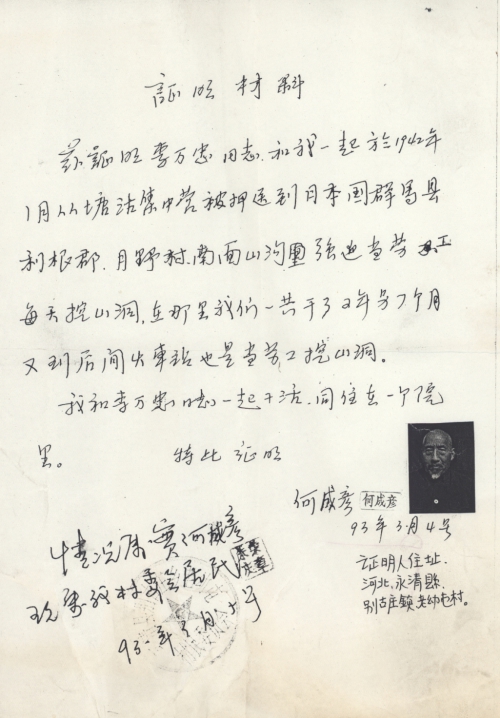 証明材料
兹証明李万忠同志.和我一起於1942年
1月从塘沽集中营被押送到日本国群馬县
利根郡.月野村.南面山沟里强迫当劳工
每天挖山洞,在那里我们一共干了2年另7个月
又到后閒火車站也是当劳工挖山洞。
我和李万忠同志一起干活,同住在一个院
里。 特此証明
何成彦 何成彦
93年3月4号
情况属实何成彦
现系我村委会居民
93.年3月5号
証明人住址.
河北.永清縣.
别古庄鎮老幼屯村。